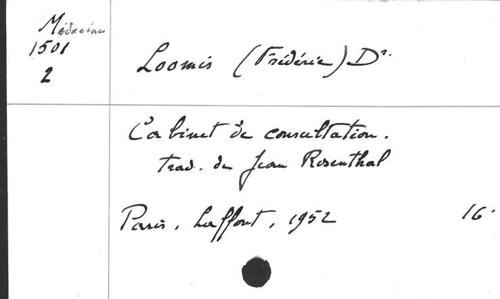 Médecine
1501
2
Loomis (Frédéric) Dr.
Cabinet de consultation.
trad. de Jean Rosenthal
Paris, Laffont, 1952 16°